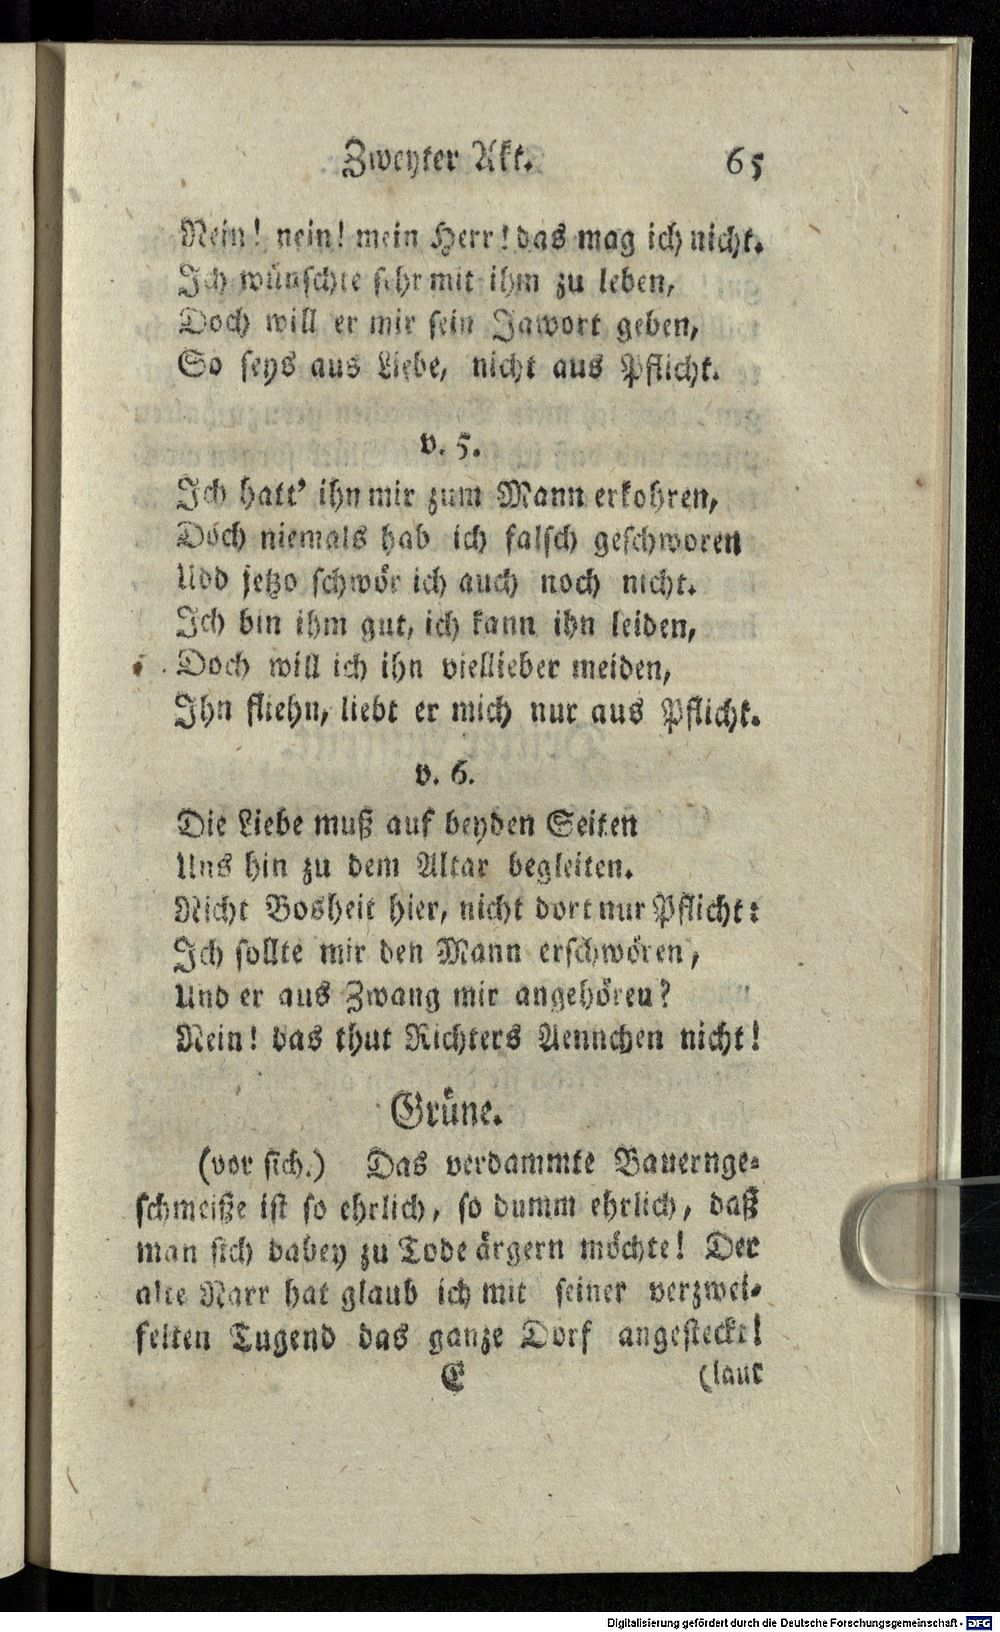 Zweyter Akt. 65
Nein! nein! mein Herr! das mag ich nicht.
Ich wünschte sehr mit ihm zu leben,
Doch will er mir sein Jawort geben,
So seys aus Liebe, nicht aus Pflicht.
v. 5.
Ich hatt' ihn mir zum Mann erkohren,
Doch niemals hab ich falsch geschworen
Udd jetzo schwör ich auch noch nicht.
Ich bin ihm gut, ich kann ihn leiden,
Doch will ich ihn viellieber meiden,
Ihn fliehn, liebt er mich nur aus Pflicht.
v. 6.
Die Liebe muß auf beyden Seiten
Uns hin zu dem Altar begleiten.
Nicht Bosheit hier, nicht dort nur Pflicht:
Ich sollte mir den Mann erschwören,
Und er aus Zwang mir angehören?
Nein! das thut Richters Aennchen nicht!
Grüne.
(vor sich.) Das verdammte Bauernge-
schmeiße ist so ehrlich, so dumm ehrlich, daß
man sich dabey zu Tode ärgern möchte! Der
alte Narr hat glaub ich mit seiner verzwei-
felten Tugend das ganze Dorf angesteckt!
E (laut
Digitalisierung gefördert durch die Deutsche Forschungsgemeinschaft - DFG